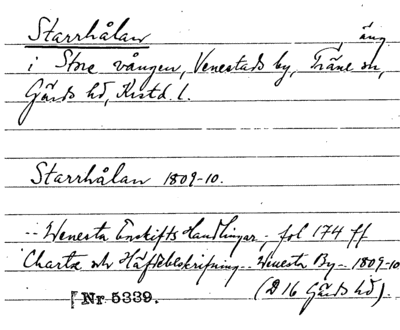 Starrhålan äng
i Store vången, Venestads by, Träne sn,
Gärds hd, Krstd. l.
Starrhålan 1809-10.
-- Wenesta Enskifts Handlingar, fol 174 ff
Charta och Häfdebeskrifning -- Wenesta By -- 1809-10
(D 16 Gärds hd).
Nr 5339.